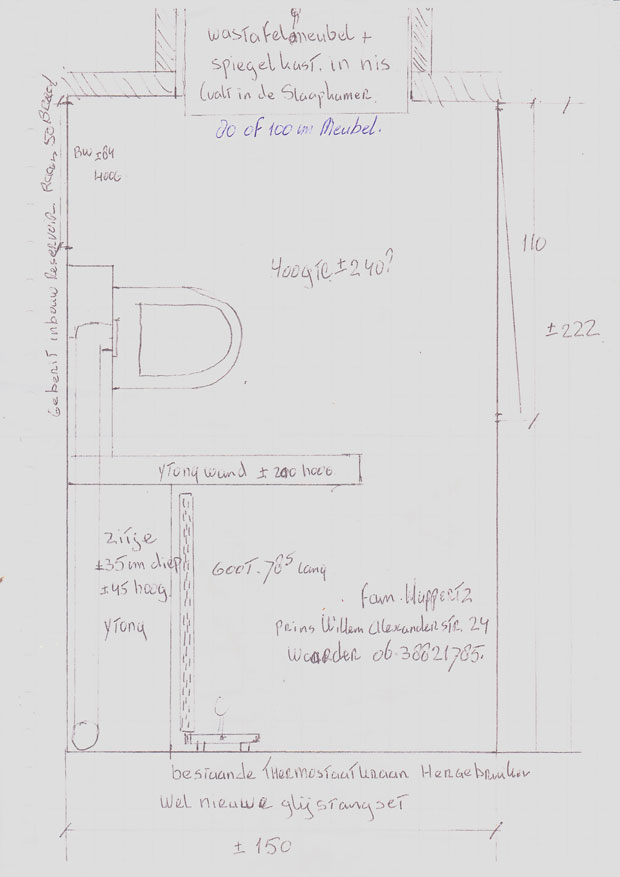 wastafelmeubel +
spiegelkast. in nis
(valt in de Slaapkamer.
90 of 100 cm Meubel.
BW ±84
hoog
Geberit inbouw Reservoir
hoogte ±240?
110
±222
ytong wand ± 200 hoog
zitje
±35 cm diep
±45 hoog
ytong
Goot. 78⁵ lang
fam. Huppertz
Prins Willem Alexanderstr. 24
Waarder 06-38821785.
bestaande thermostaatkraan Hergebruiken
Wel nieuwe glijstangset
± 150